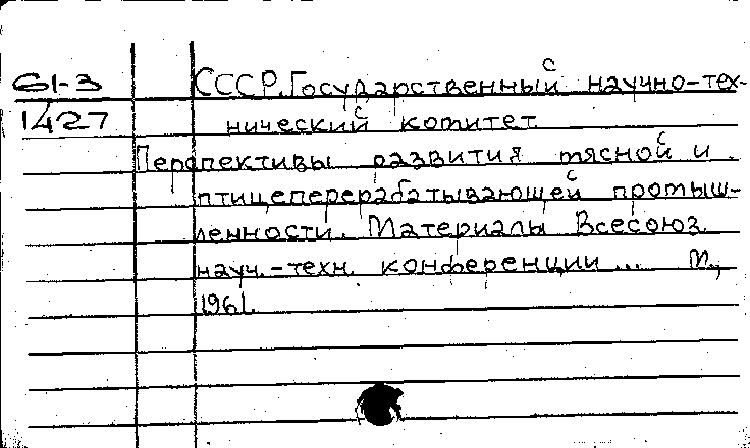 61-3
1427
СССР. Государственный научно-тех-
нический комитет
Перспективы развития мясной и
птицеперерабатывающей промыш-
ленности. Материалы Всесоюз.
науч.-техн. конференции ... М.,
1961.